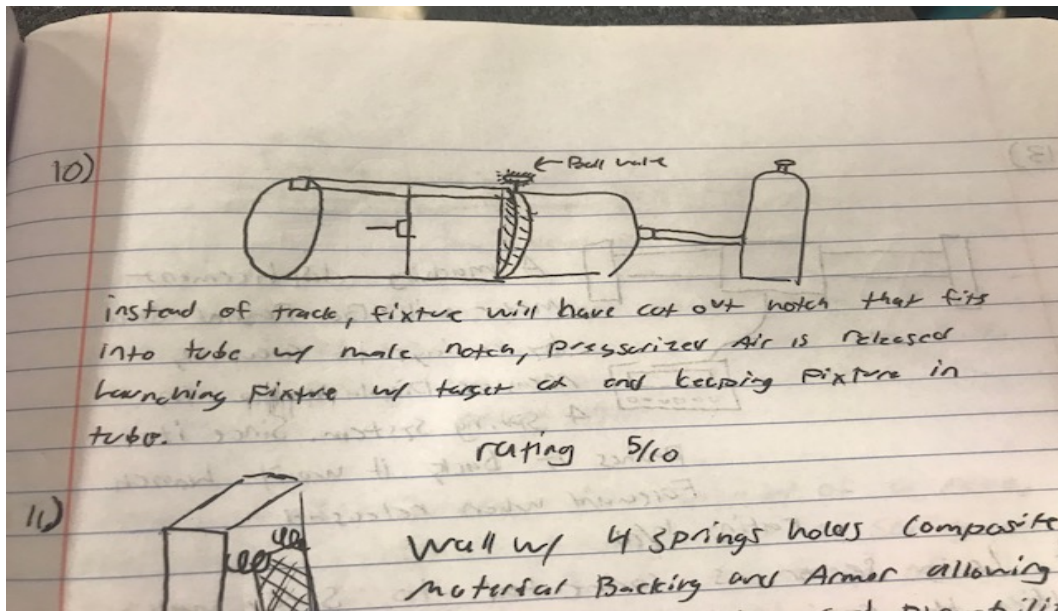 10)
← Ball valve
instead of track, fixture will have cut out notch that fits
into tube w/ male notch, pressurized Air is released
launching fixture w/ target and keeping fixture in
tube.
rating 5/10
11)
Wall w/ 4 springs holds composite
material Backing and Armor allowing